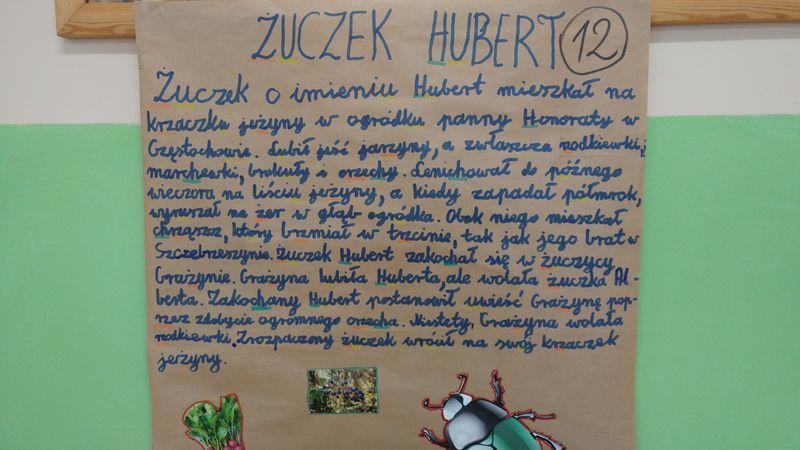 ŻUCZEK HUBERT 12
Żuczek o imieniu Hubert mieszkał na
krzaczku jeżyny w ogródku panny Honoraty w
Częstochowie. Lubił jeść jarzyny, a zwłaszcza rodkiewki,
marchewki, brokuły i orzechy. Leniuchował do późnego
wieczora na liściu jeżyny, a kiedy zapadał półmrok,
wyruszał na żer w głąb ogródka. Obok niego mieszkał
chrząszcz, który brzmiał w trzcinie, tak jak jego brat w
Szczebrzeszynie. Żuczek Hubert zakochał się w żuczycy
Grażynie. Grażyna lubiła Huberta, ale wolała żuczka Al-
berta. Zakochany Hubert postanowił uwieść Grażynę pop-
rzez zdobycie ogromnego orzecha. Niestety, Grażyna wolała
rodkiewki. Zrozpaczony żuczek wrócił na swój krzaczek
jeżyny.